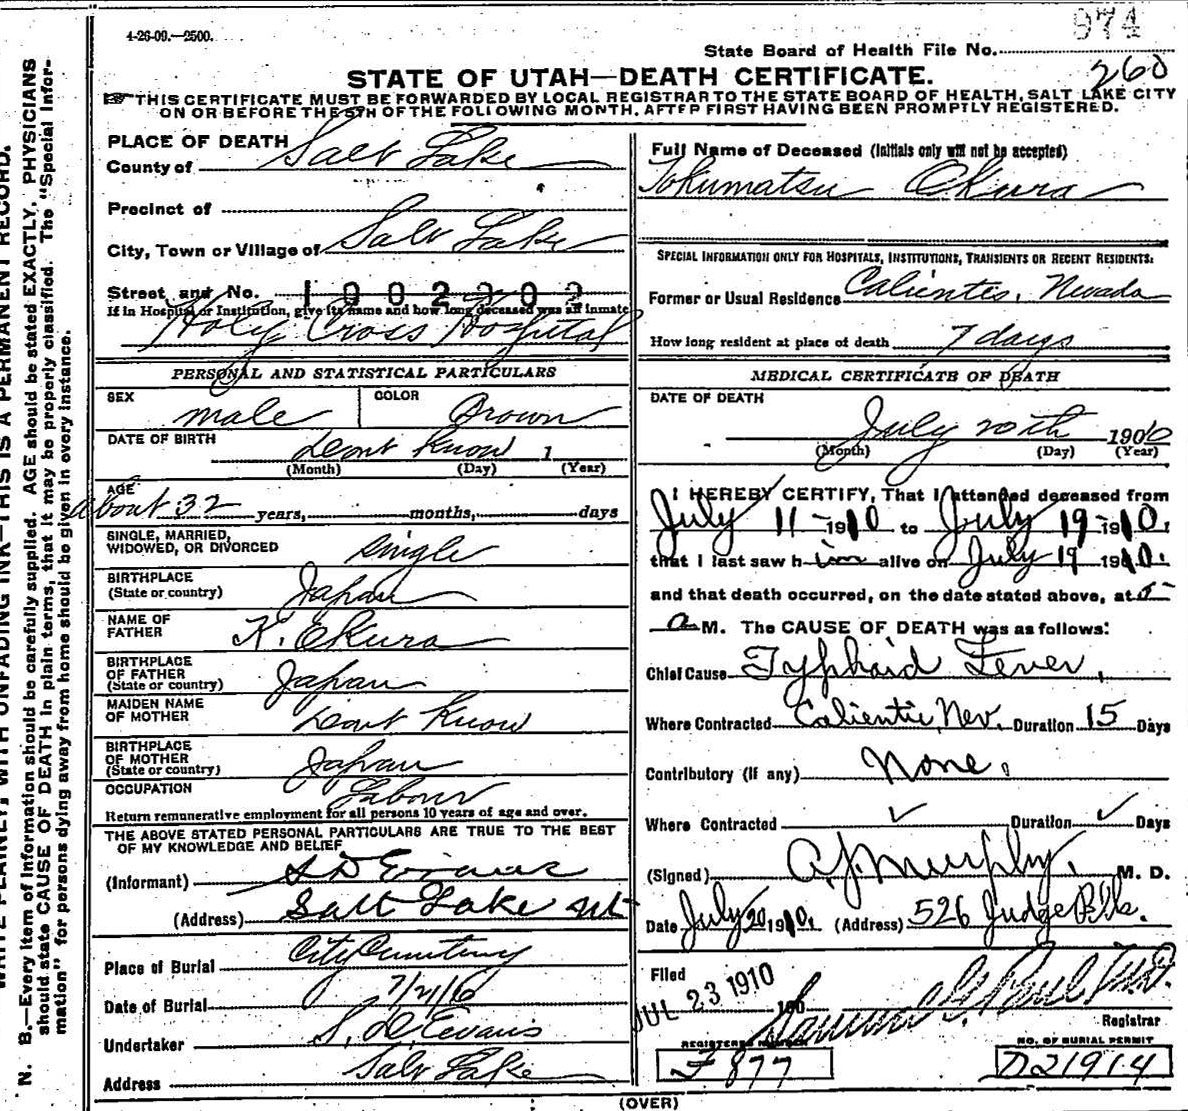 974
4-26-09.—2500.
State Board of Health File No.
260
STATE OF UTAH—DEATH CERTIFICATE.
THIS CERTIFICATE MUST BE FORWARDED BY LOCAL REGISTRAR TO THE STATE BOARD OF HEALTH, SALT LAKE CITY
ON OR BEFORE THE 5TH OF THE FOLLOWING MONTH, AFTER FIRST HAVING BEEN PROMPTLY REGISTERED.
N. B.—Every item of information should be carefully supplied. AGE should be stated EXACTLY. PHYSICIANS
should state CAUSE OF DEATH in plain terms, that it may be properly classified. The "Special Infor-
mation" for persons dying away from home should be given in every instance.
WRITE PLAINLY, WITH UNFADING INK—THIS IS A PERMANENT RECORD.
PLACE OF DEATH
County of Salt Lake
Precinct of
City, Town or Village of Salt Lake
Street and No. 1002302
If in Hospital or Institution, give its name and how long deceased was an inmate
Holy Cross Hospital
PERSONAL AND STATISTICAL PARTICULARS
SEX male COLOR Brown
DATE OF BIRTH Dont Know 1
(Month) (Day) (Year)
AGE
about 32 years, months, days
SINGLE, MARRIED,
WIDOWED, OR DIVORCED single
BIRTHPLACE
(State or country) Japan
NAME OF
FATHER K. Okura
BIRTHPLACE
OF FATHER
(State or country) Japan
MAIDEN NAME
OF MOTHER Dont Know
BIRTHPLACE
OF MOTHER
(State or country) Japan
OCCUPATION Labour
Return remunerative employment for all persons 10 years of age and over.
THE ABOVE STATED PERSONAL PARTICULARS ARE TRUE TO THE BEST
OF MY KNOWLEDGE AND BELIEF
(Informant) S D Evans
(Address) Salt Lake Ut
Place of Burial City Cemetery
Date of Burial 7/21/10
Undertaker S. D. Evans
Address Salt Lake
Full Name of Deceased (Initials only will not be accepted)
Tokumatsu Okura
SPECIAL INFORMATION ONLY FOR HOSPITALS, INSTITUTIONS, TRANSIENTS OR RECENT RESIDENTS:
Former or Usual Residence Calientes, Nevada
How long resident at place of death 7 days
MEDICAL CERTIFICATE OF DEATH
DATE OF DEATH
July 20th 1910
(Month) (Day) (Year)
I HEREBY CERTIFY, That I attended deceased from
July 11 1910 to July 19 1910,
that I last saw him alive on July 19 1910.
and that death occurred, on the date stated above, at 5
a M. The CAUSE OF DEATH was as follows:
Chief Cause Typhoid Fever,
Where Contracted Calientie, Nev. Duration 15 Days
Contributory (if any) None.
Where Contracted ✓ Duration ✓ Days
(Signed) A. J. Murphy, M. D.
Date July 20 1910. (Address) 526 Judge Bldg.
Filed JUL 23 1910 190
Samuel G. Paul M.D.
Registrar
REGISTERED NUMBER
F 877
NO. OF BURIAL PERMIT
D21914
(OVER)